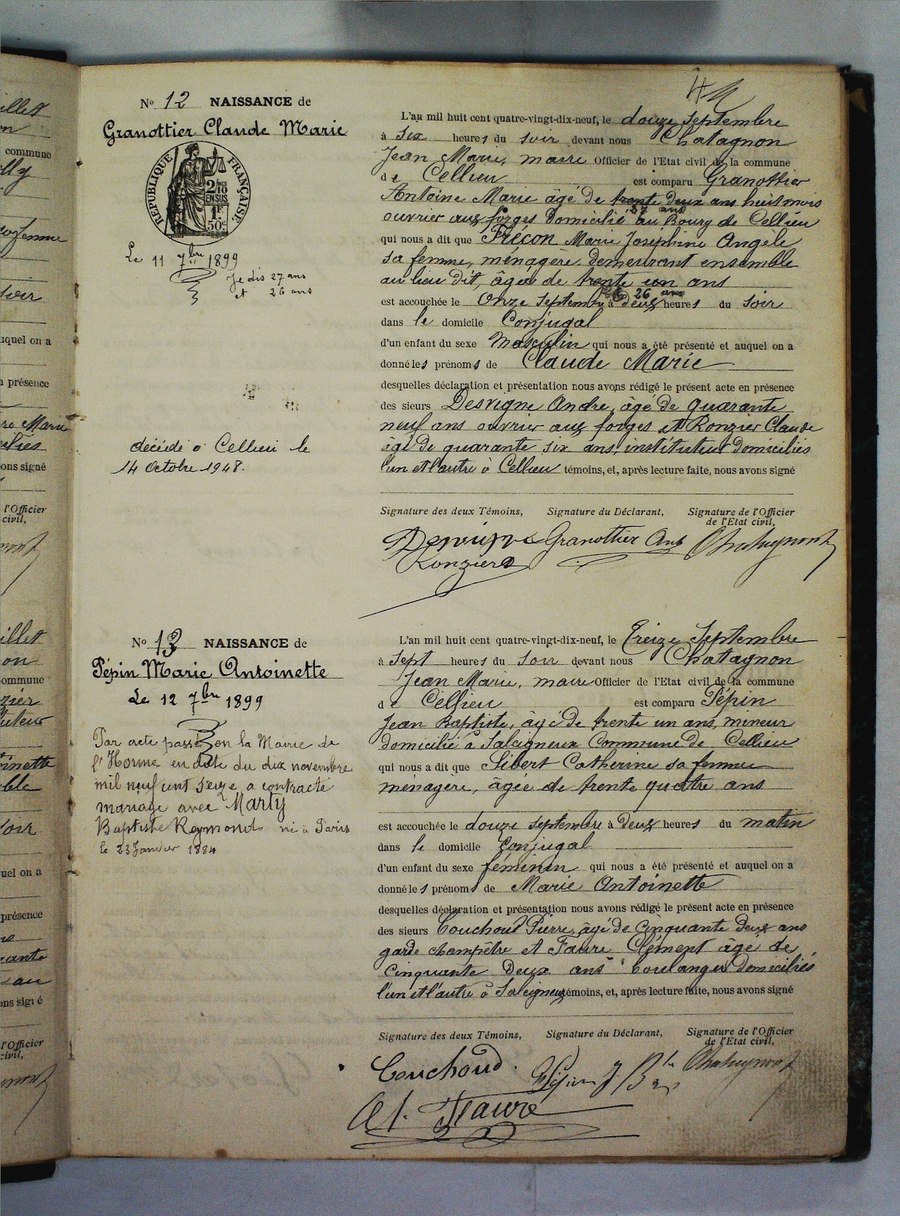 4
Nº 12 NAISSANCE de
Granottier Claude Marie
RÉPUBLIQUE FRANÇAISE
2/10
EN SUS
1F
50c
Le 11 7bre 1899
Je dis 27 ans
et 26 ans
décédé à Cellieu le
14 Octobre 1948.
L'an mil huit cent quatre-vingt-dix-neuf, le douze Septembre
à six heures du soir devant nous Chatagnon
Jean Marie, maire Officier de l'Etat civil de la commune
de Cellieu est comparu Granottier
Antoine Marie âgé de trente deux ans huit mois
27 ans
ouvrier aux forges domicilié au Bourg de Cellieu
qui nous a dit que Frécon Marie Josephine Angele
sa femme, ménagère demeurant ensemble
au lieu dit, âgée de trente un ans
26 ans
est accouchée le Onze Septembre à deux heures du soir
dans le domicile Conjugal
d'un enfant du sexe masculin qui nous a été présenté et auquel on a
donné les prénoms de Claude Marie
desquelles déclaration et présentation nous avons rédigé le présent acte en présence
des sieurs Desvigne André, âgé de quarante
neuf ans ouvrier aux forges et Ronzier Claude
âgé de quarante six ans, instituteur domiciliés
l'un et l'autre à Cellieu témoins, et, après lecture faite, nous avons signé
Signature des deux Témoins, Signature du Déclarant, Signature de l'Officier
de l'Etat civil,
Desvigne Granottier Ant Chatagnon
Ronzier
Nº 13 NAISSANCE de
Pépin Marie Antoinette
Le 12 7bre 1899
Par acte passé en la Mairie de
l'Horme en date du dix novembre
mil neuf cent seize a contracté
mariage avec Marty
Baptiste Reymond né à Paris
le 23 Janvier 1884
L'an mil huit cent quatre-vingt-dix-neuf, le Treize Septembre
à sept heures du soir devant nous Chatagnon
Jean Marie, maire Officier de l'Etat civil de la commune
de Cellieu est comparu Pépin
Jean Baptiste, âgé de trente un ans, mineur
domicilié à Salcigneux Commune de Cellieu
qui nous a dit que Sibert Catherine sa femme
ménagère, âgée de trente quatre ans
est accouchée le douze septembre à deux heures du matin
dans le domicile Conjugal
d'un enfant du sexe féminin qui nous a été présenté et auquel on a
donné les prénoms de Marie Antoinette
desquelles déclaration et présentation nous avons rédigé le présent acte en présence
des sieurs Couchoud Pierre, âgé de cinquante deux ans
garde champêtre et Faure Clément âgé de
cinquante deux ans boulanger domiciliés
l'un et l'autre à Salcigneux témoins, et, après lecture faite, nous avons signé
Signature des deux Témoins, Signature du Déclarant, Signature de l'Officier
de l'Etat civil,
Couchoud Pépin J Bte Chatagnon
Faure